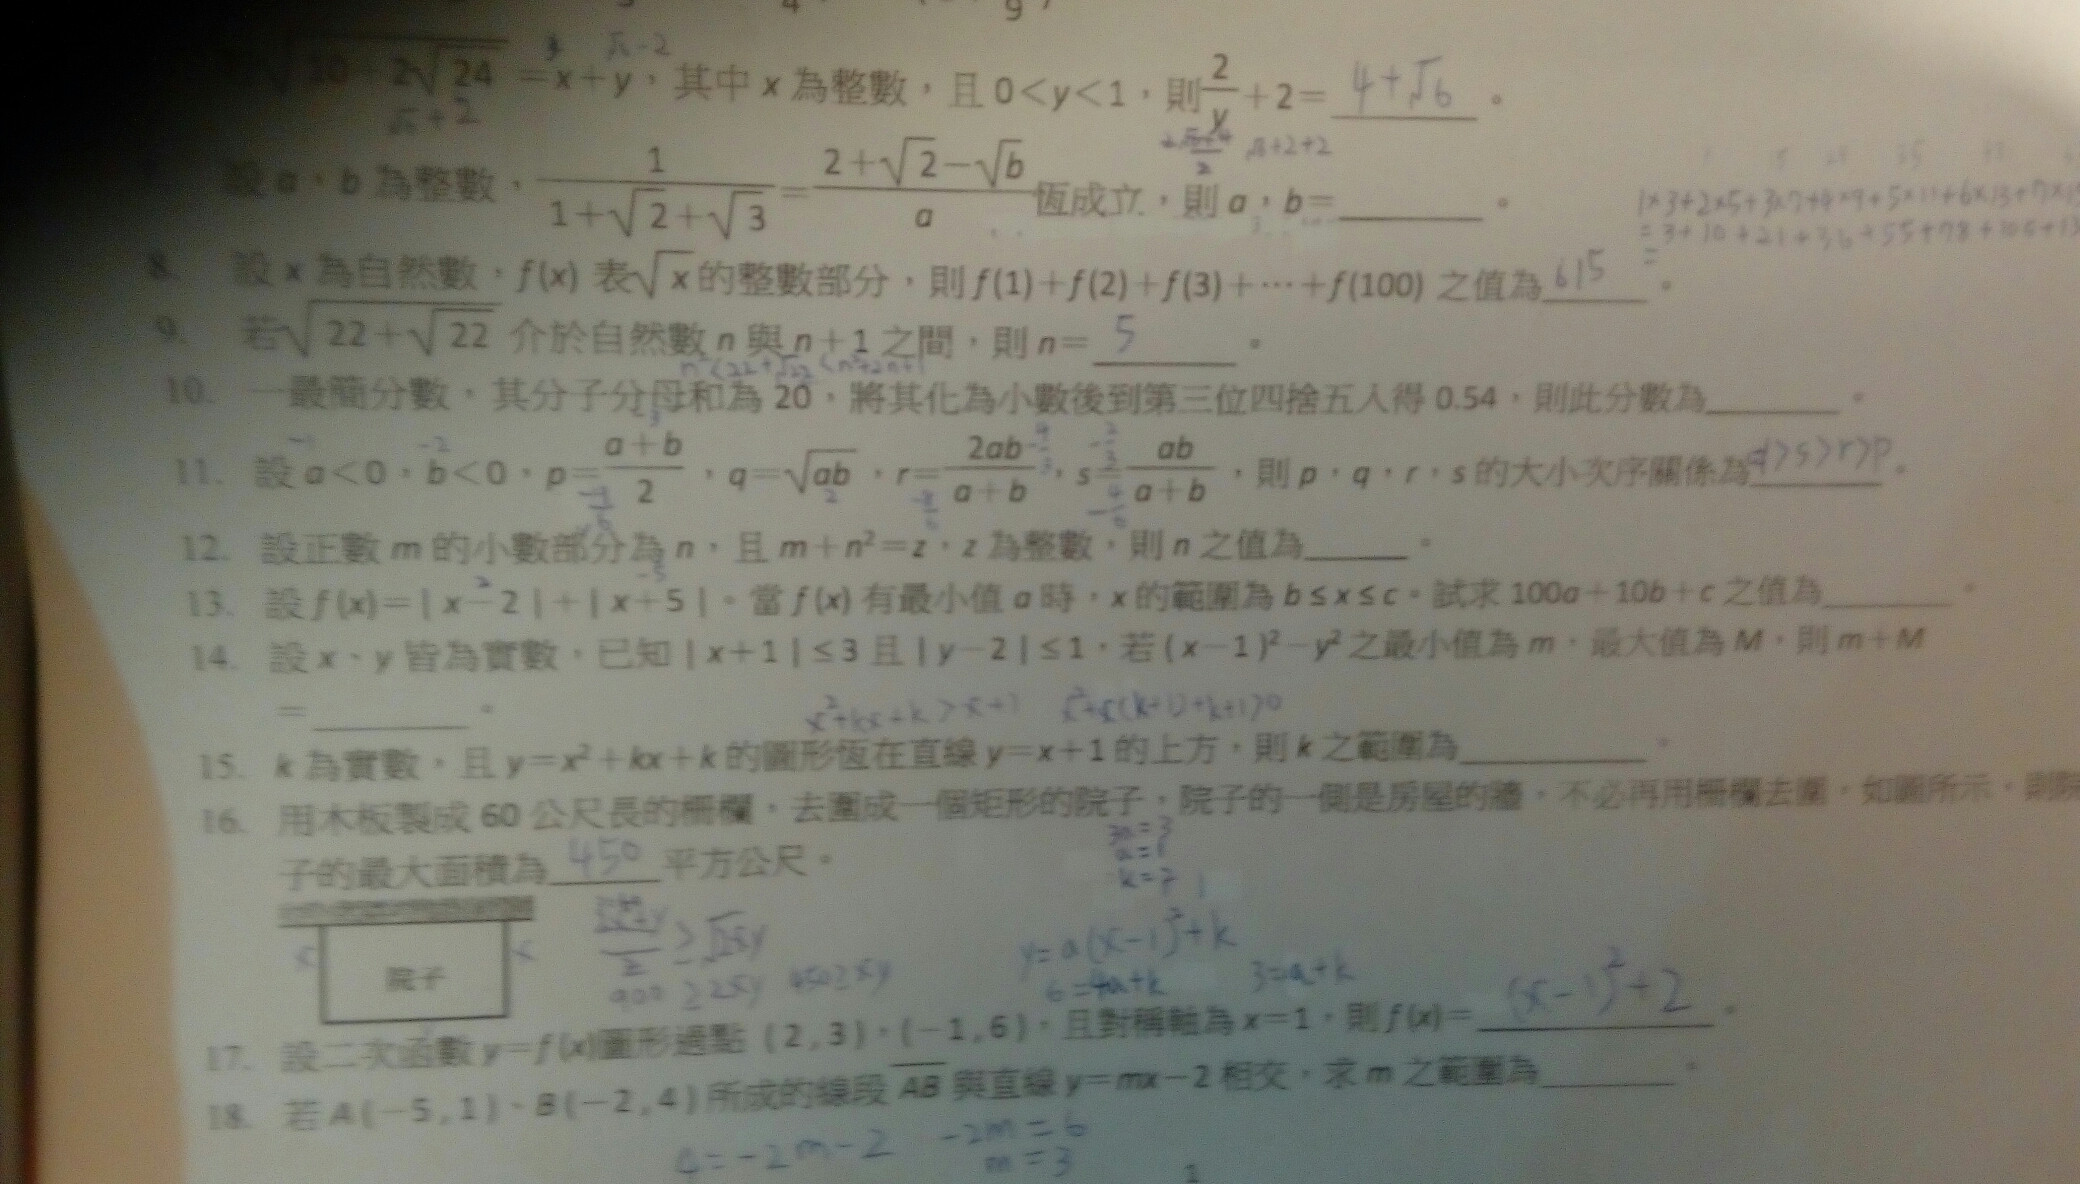 √10+2√24 =x+y，其中 x 為整數，且 0<y<1，則2/y+2= 4+√6 。
√6+2
設 a，b 為整數，1/(1+√2+√3)=(2+√2-√b)/a恆成立，則 a，b=______。
1×3+2×5+3×7+4×9+5×11+6×13+7×15
=3+10+21+36+55+78+105+
8. 設 x 為自然數，f(x) 表√x的整數部分，則 f(1)+f(2)+f(3)+⋯+f(100) 之值為 615 。
9. 若√(22+√22) 介於自然數 n 與 n+1 之間，則 n= 5 。
n²<22+√22<n²+2n+1
10. 一最簡分數，其分子分母和為 20，將其化為小數後到第三位四捨五入得 0.54，則此分數為______。
11. 設 a<0，b<0，p=(a+b)/2，q=√ab，r=2ab/(a+b)，s=ab/(a+b)，則 p，q，r，s 的大小次序關係為 q>s>r>p 。
12. 設正數 m 的小數部分為 n，且 m+n²=z，z 為整數，則 n 之值為______。
13. 設 f(x)=|x-2|+|x+5|。當 f(x) 有最小值 a 時，x 的範圍為 b≤x≤c。試求 100a+10b+c 之值為______。
14. 設 x、y 皆為實數，已知 |x+1|≤3 且 |y-2|≤1，若 (x-1)²-y² 之最小值為 m，最大值為 M，則 m+M
=______。
x²+kx+k>x+1 x²+x(k+1)+k+1>0
15. k 為實數，且 y=x²+kx+k 的圖形恆在直線 y=x+1 的上方，則 k 之範圍為______。
16. 用木板製成 60 公尺長的柵欄，去圍成一個矩形的院子，院子的一側是房屋的牆，不必再用柵欄去圍，如圖所示，則院
子的最大面積為 450 平方公尺。
3a=3
a=1
≥√2xy
900≥2xy 450≥xy
院子
y=a(x-1)²+k
6=4a+k 3=a+k
17. 設二次函數 y=f(x)圖形過點 (2,3)，(-1,6)，且對稱軸為 x=1，則 f(x)= (x-1)²+2 。
18. 若 A(-5,1)、B(-2,4) 所成的線段 AB 與直線 y=mx-2 相交，求 m 之範圍為______。
4=-2m-2 -2m=6
m=3